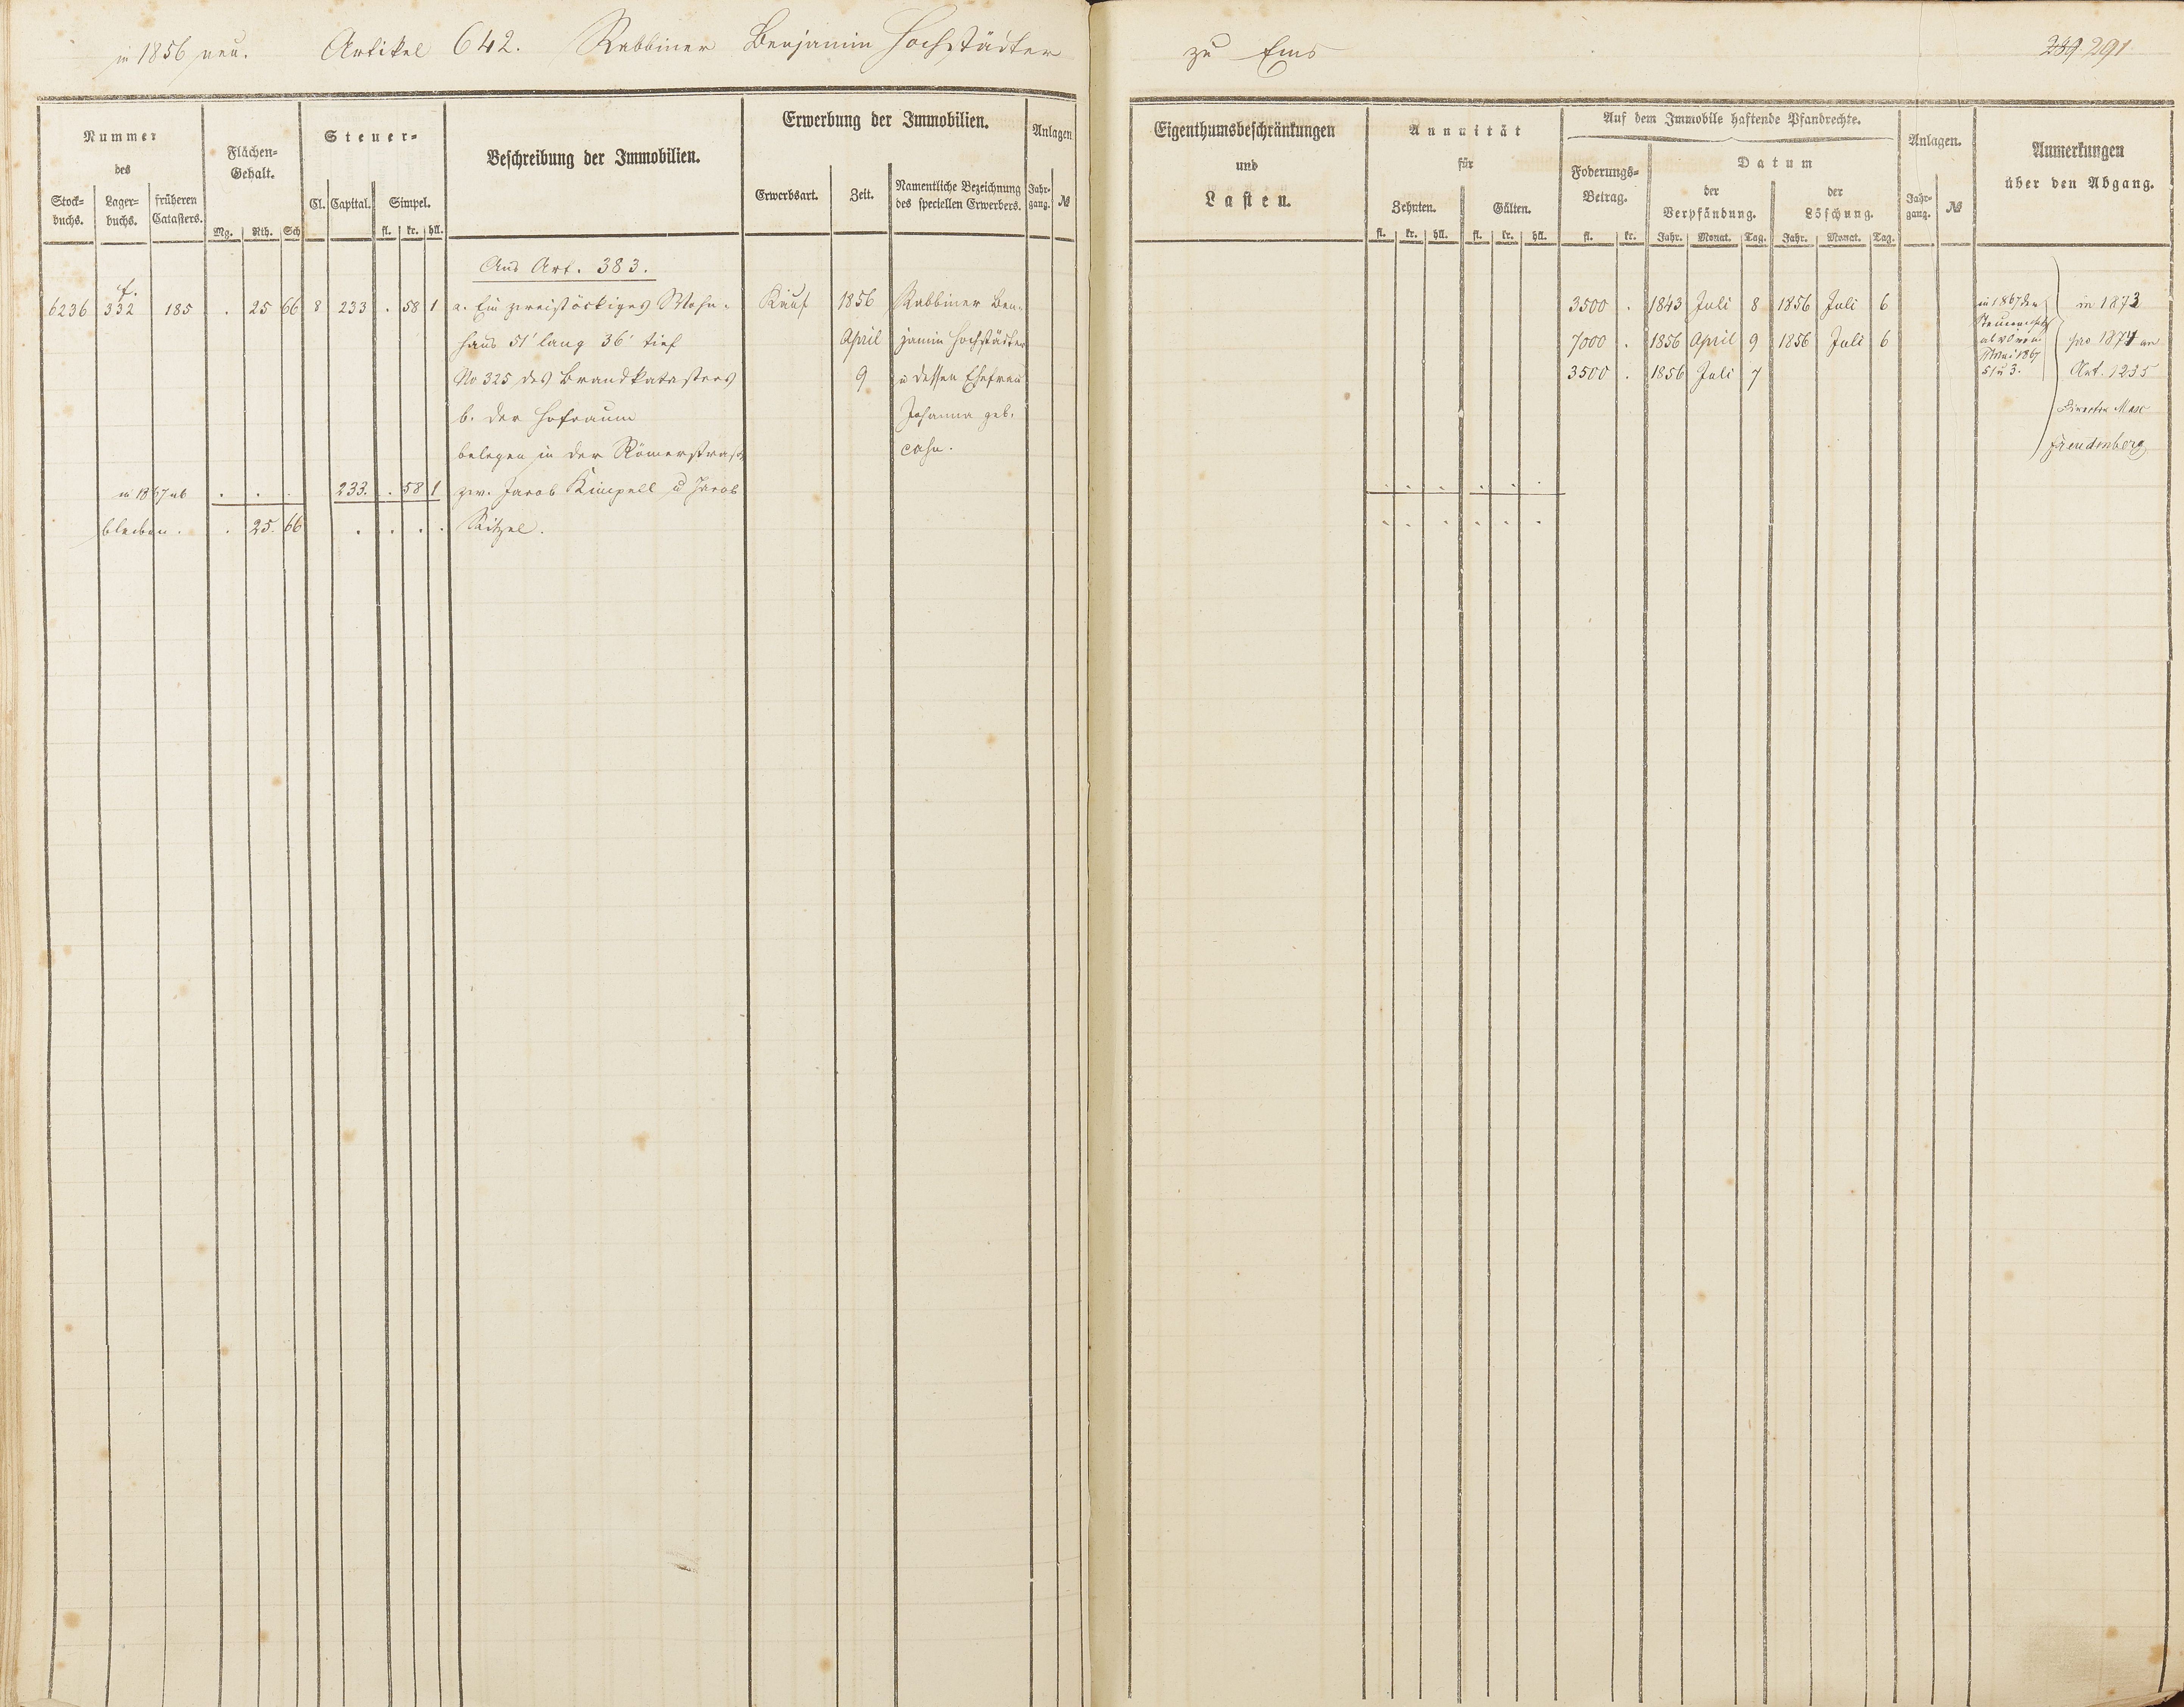 in 1856 neu. Artikel 642. Rabbiner Benjamin Hochstädter zu Ems
239 291
Nummer
des
Stock-
buchs.
Lager-
buchs.
früheren
Catasters.
Flächen-
Gehalt.
Mg. Rth. Sch
Steuer-
Cl. Capital. Simpel.
fl. kr. hll.
Beschreibung der Immobilien.
Erwerbung der Immobilien.
Erwerbsart. Zeit.
Namentliche Bezeichnung
des speciellen Erwerbers.
Anlagen
Jahr-
gang. №
Eigenthumsbeschränkungen
und
Lasten.
Annuität
für
Zehnten. Gülten.
fl. kr. hll. fl. kr. hll.
Auf dem Immobile haftende Pfandrechte.
Foderungs-
Betrag.
fl. kr.
Datum
der
Verpfändung.
der
Löschung.
Jahr. Monat. Tag. Jahr. Monat. Tag.
Anlagen.
Jahr-
gang. №
Anmerkungen
über den Abgang.
Aus Art. 383.
f.
6236 332 185 . 25 66 8 233 . 58 1 a. Ein zweistöckiges Wohn- Kauf 1856 Rabbiner Ben-
haus 51' lang 36' tief April jamin Hochstädter
No 325 des Brandkatasters 9 u dessen Ehefrau
b. der Hofraum Johanna geb.
belegen in der Römerstraße Cahn.
in 1867 ab . . . 233. . 58 1 zw. Jacob Kimpell u Jacob
bleiben . . 25. 66 . . . . Kitzel.
3500 . 1843 Juli 8 1856 Juli 6
7000 . 1856 April 9 1856 Juli 6
3500 . 1856 Juli 7
in 1867 der
Mai 1867
51 u 3.
in 1873
pro 1874 an
Art. 1235
Director Max
Freudenberg